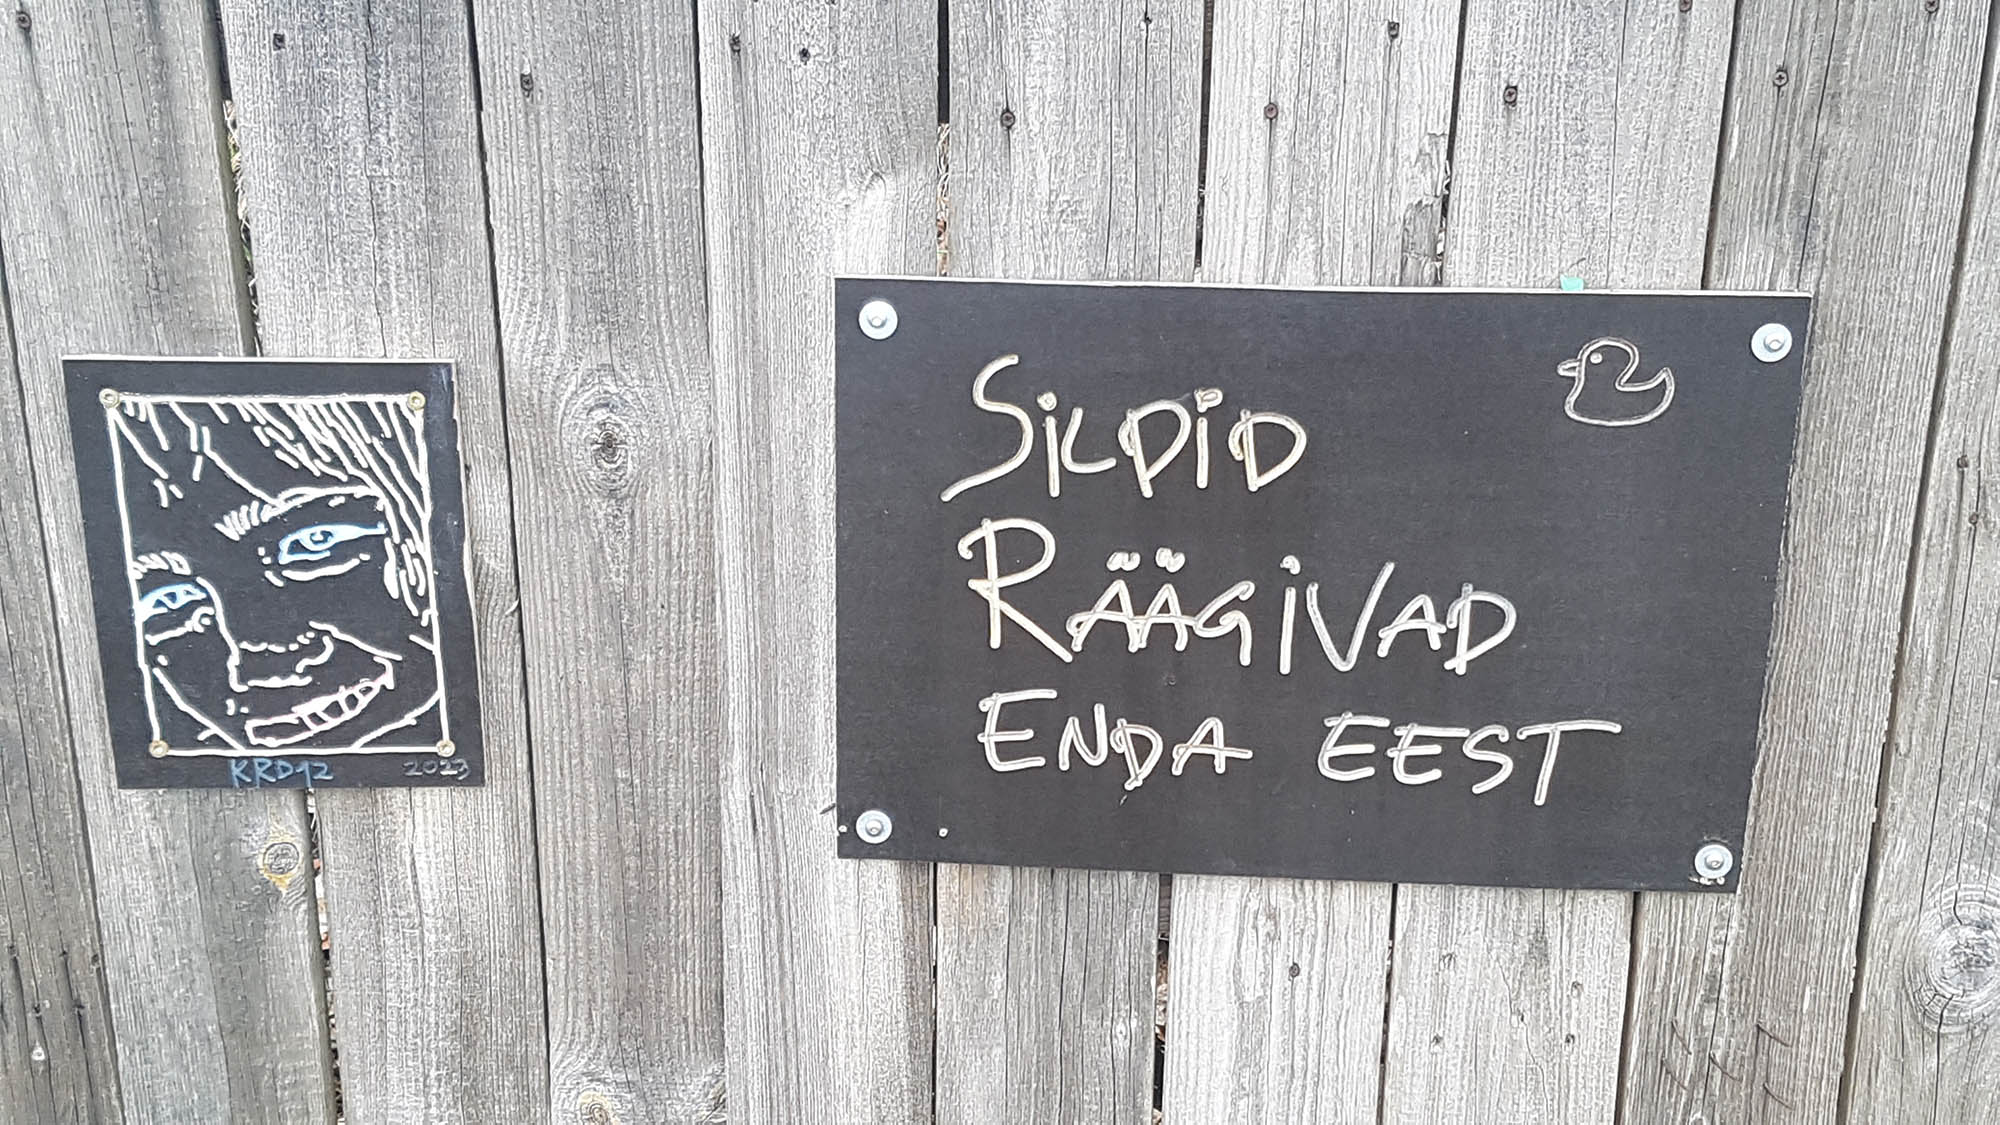 SILDID
RÄÄGIVAD
ENDA EEST
KRD12 2023